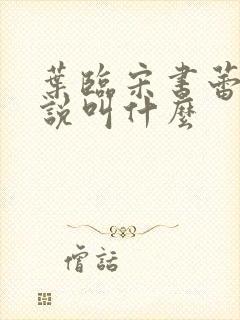 葉臨宋書蕾
說叫什麼
僧話